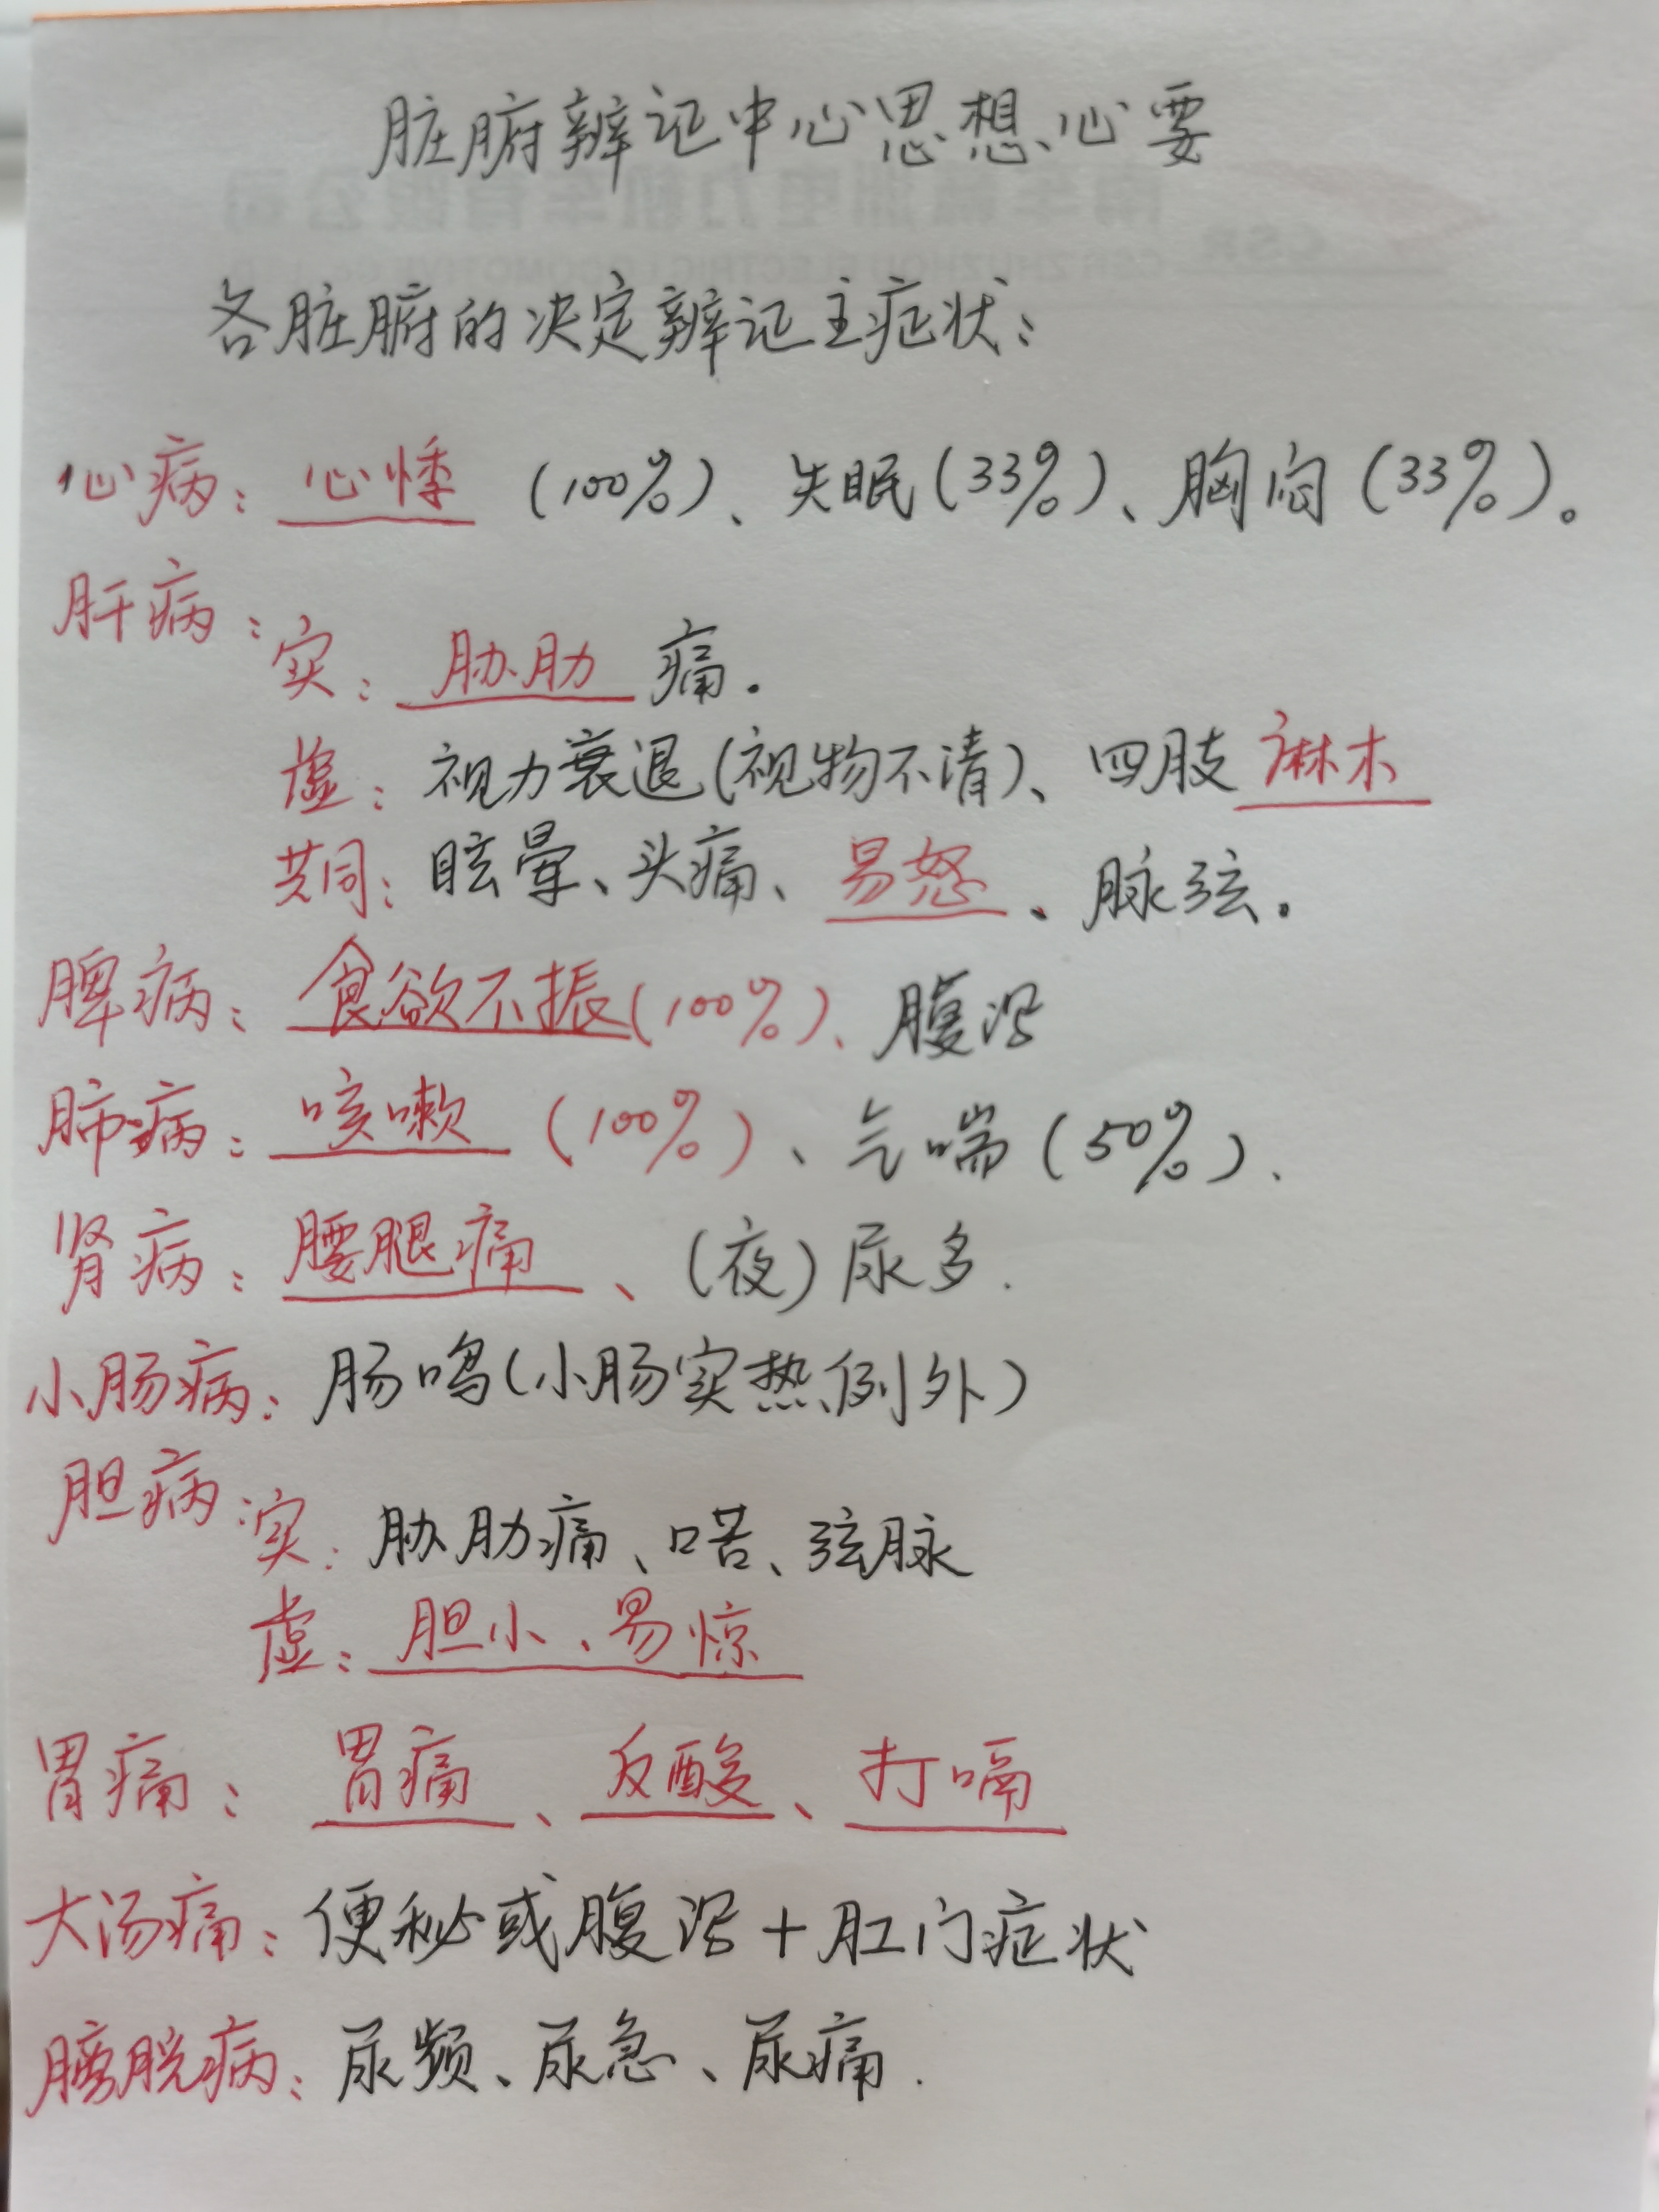 脏腑辨证中心思想、心要
各脏腑的决定辨证主症状：
心病：心悸（100%）、失眠（33%）、胸闷（33%）。
肝病：
实：胁肋痛.
虚：视力衰退（视物不清）、四肢麻木
共同：眩晕、头痛、易怒、脉弦.
脾病：食欲不振（100%）、腹泻
肺病：咳嗽（100%）、气喘（50%）、
肾病：腰腿痛、（夜）尿多.
小肠病：肠鸣（小肠实热例外）
胆病：
实：胁肋痛、口苦、弦脉
虚：胆小、易惊
胃痛：胃痛、反酸、打嗝
大汤痛：便秘或腹泻+肛门症状
膀脱病：尿频、尿急、尿痛.